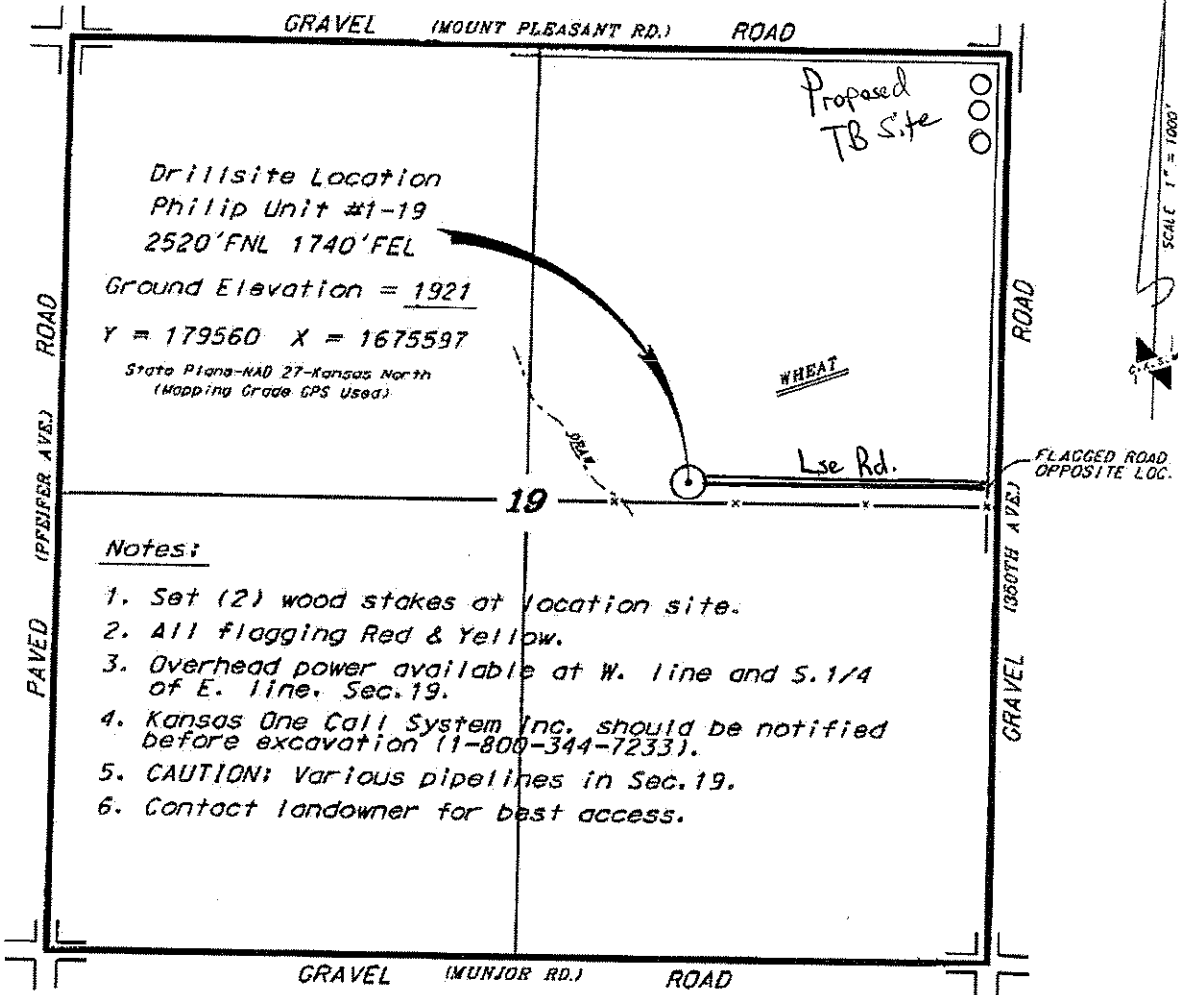 GRAVEL (MOUNT PLEASANT RD.) ROAD
Proposed
TB Site
SCALE 1" = 1000'
Drillsite Location
Philip Unit #1-19
2520'FNL 1740'FEL
Ground Elevation = 1921
Y = 179560 X = 1675597
State Plane-NAD 27-Kansas North
(Mapping Grade GPS Used)
WHEAT
DRAW
Lse Rd.
FLAGGED ROAD
OPPOSITE LOC.
19
PAVED (PFEIFER AVE.) ROAD
GRAVEL (360TH AVE.) ROAD
Notes:
1. Set (2) wood stakes at location site.
2. All flagging Red & Yellow.
3. Overhead power available at W. line and S.1/4
of E. line, Sec.19.
4. Kansas One Call System Inc. should be notified
before excavation (1-800-344-7233).
5. CAUTION: Various pipelines in Sec.19.
6. Contact landowner for best access.
GRAVEL (MUNJOR RD.) ROAD